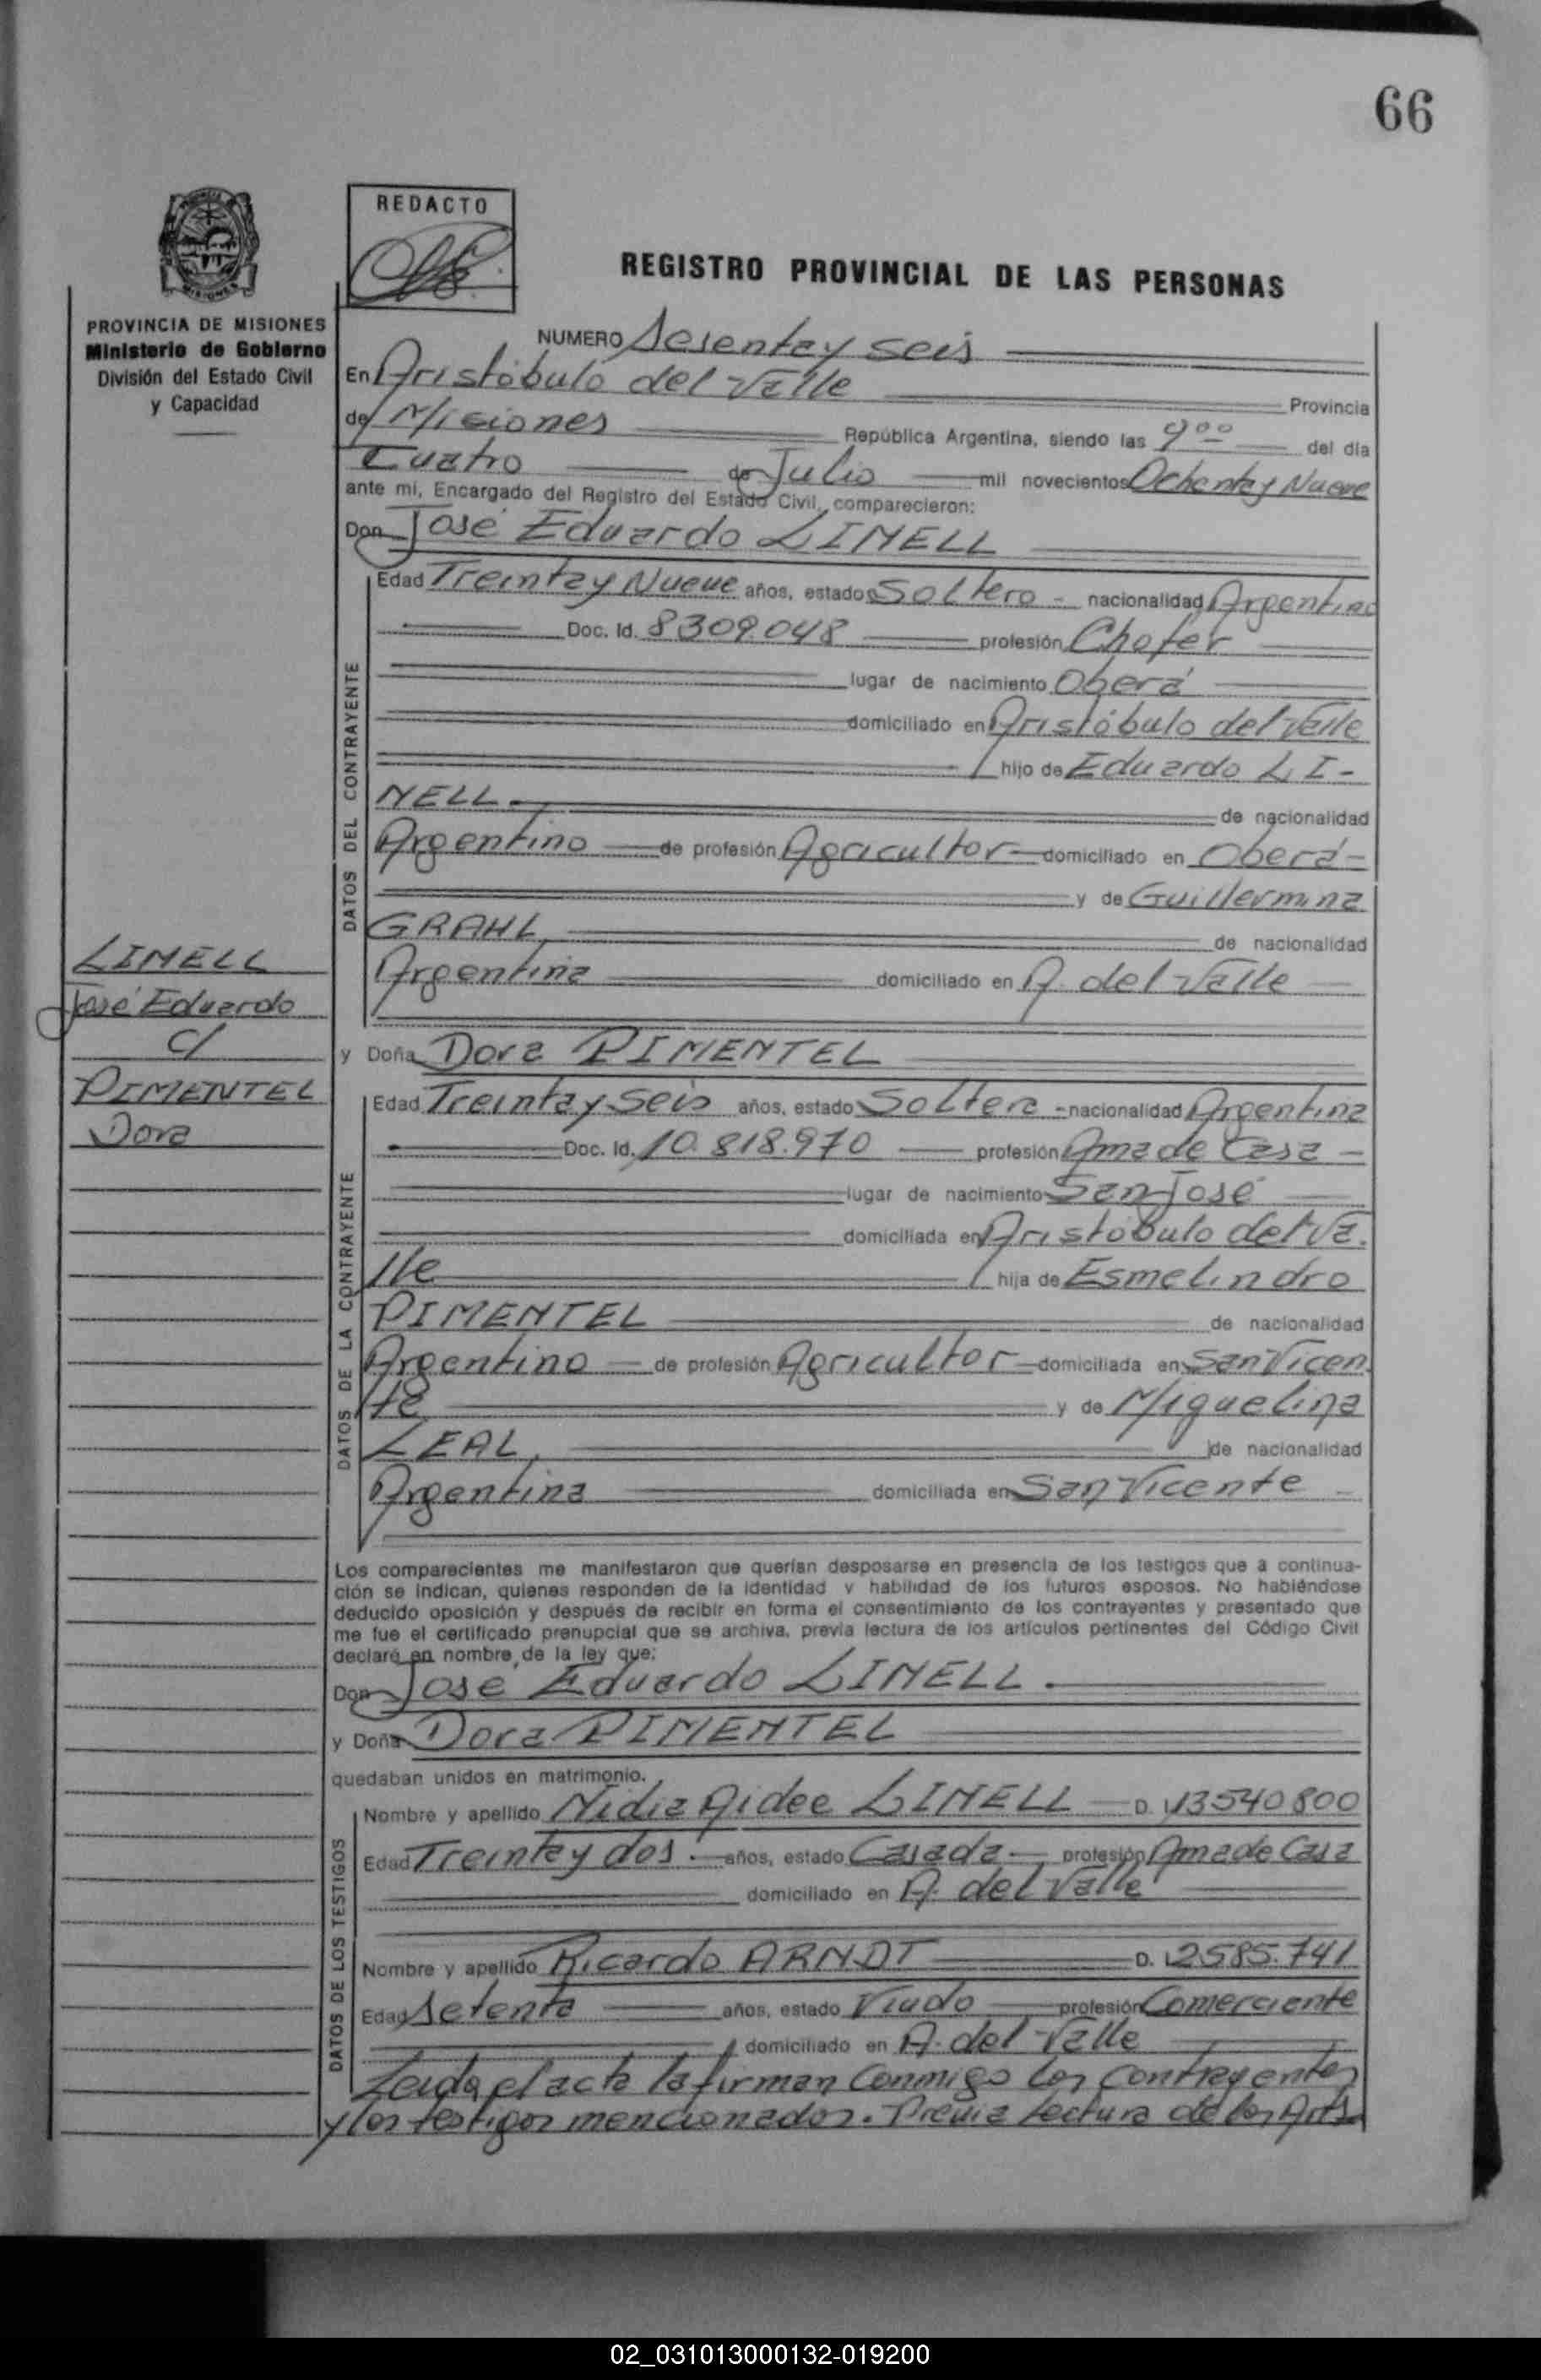 66
REDACTO
REGISTRO PROVINCIAL DE LAS PERSONAS
PROVINCIA DE MISIONES
Ministerio de Gobierno
División del Estado Civil
y Capacidad
NUMERO Sesenta y seis
En Aristóbulo del Valle Provincia
de Misiones República Argentina, siendo las 9 00 del día
Cuatro de Julio mil novecientos Ochenta y Nueve
ante mí, Encargado del Registro del Estado Civil, comparecieron:
Don José Eduardo LINELL
DATOS DEL CONTRAYENTE
Edad Treinta y Nueve años, estado Soltero - nacionalidad Argentino
Doc. Id. 8309.048 profesión Chofer
lugar de nacimiento Oberá
domiciliado en Aristóbulo del Valle
hijo de Eduardo LI-
NELL de nacionalidad
Argentino de profesión Agricultor domiciliado en Oberá -
y de Guillermina
GRAHL, de nacionalidad
Argentina domiciliado en A. del Valle
LINELL
José Eduardo
c/
PIMENTEL
Dora
y Doña Dora PIMENTEL
DATOS DE LA CONTRAYENTE
Edad Treinta y Seis años, estado Soltera - nacionalidad Argentina
Doc. Id. 10.818.970 profesión Ama de Casa -
lugar de nacimiento San José
domiciliada en Aristóbulo del Va.
lle hija de Esmelindro
PIMENTEL de nacionalidad
Argentino de profesión Agricultor domiciliada en San Vicen
te y de Miguelina
LEAL, de nacionalidad
Argentina domiciliada en San Vicente -
Los comparecientes me manifestaron que querían desposarse en presencia de los testigos que a continua-
ción se indican, quienes responden de la identidad y habilidad de los futuros esposos. No habiéndose
deducido oposición y después de recibir en forma el consentimiento de los contrayentes y presentado que
me fue el certificado prenupcial que se archiva, previa lectura de los artículos pertinentes del Código Civil
declaré en nombre de la ley que:
Don José Eduardo LINELL.
y Doña Dora PIMENTEL
quedaban unidos en matrimonio.
DATOS DE LOS TESTIGOS
Nombre y apellido Nidia Aidee LINELL D. 13540800
Edad Treinta y dos años, estado Casada profesión Ama de Casa
domiciliado en A. del Valle
Nombre y apellido Ricardo ARNDT D. 2585.741
Edad Setenta años, estado Viudo profesión Comerciante
domiciliado en A. del Valle
Leida el acta la firman conmigo los contrayentes
y los testigos mencionados. Previa lectura de los Arts
02_031013000132-019200